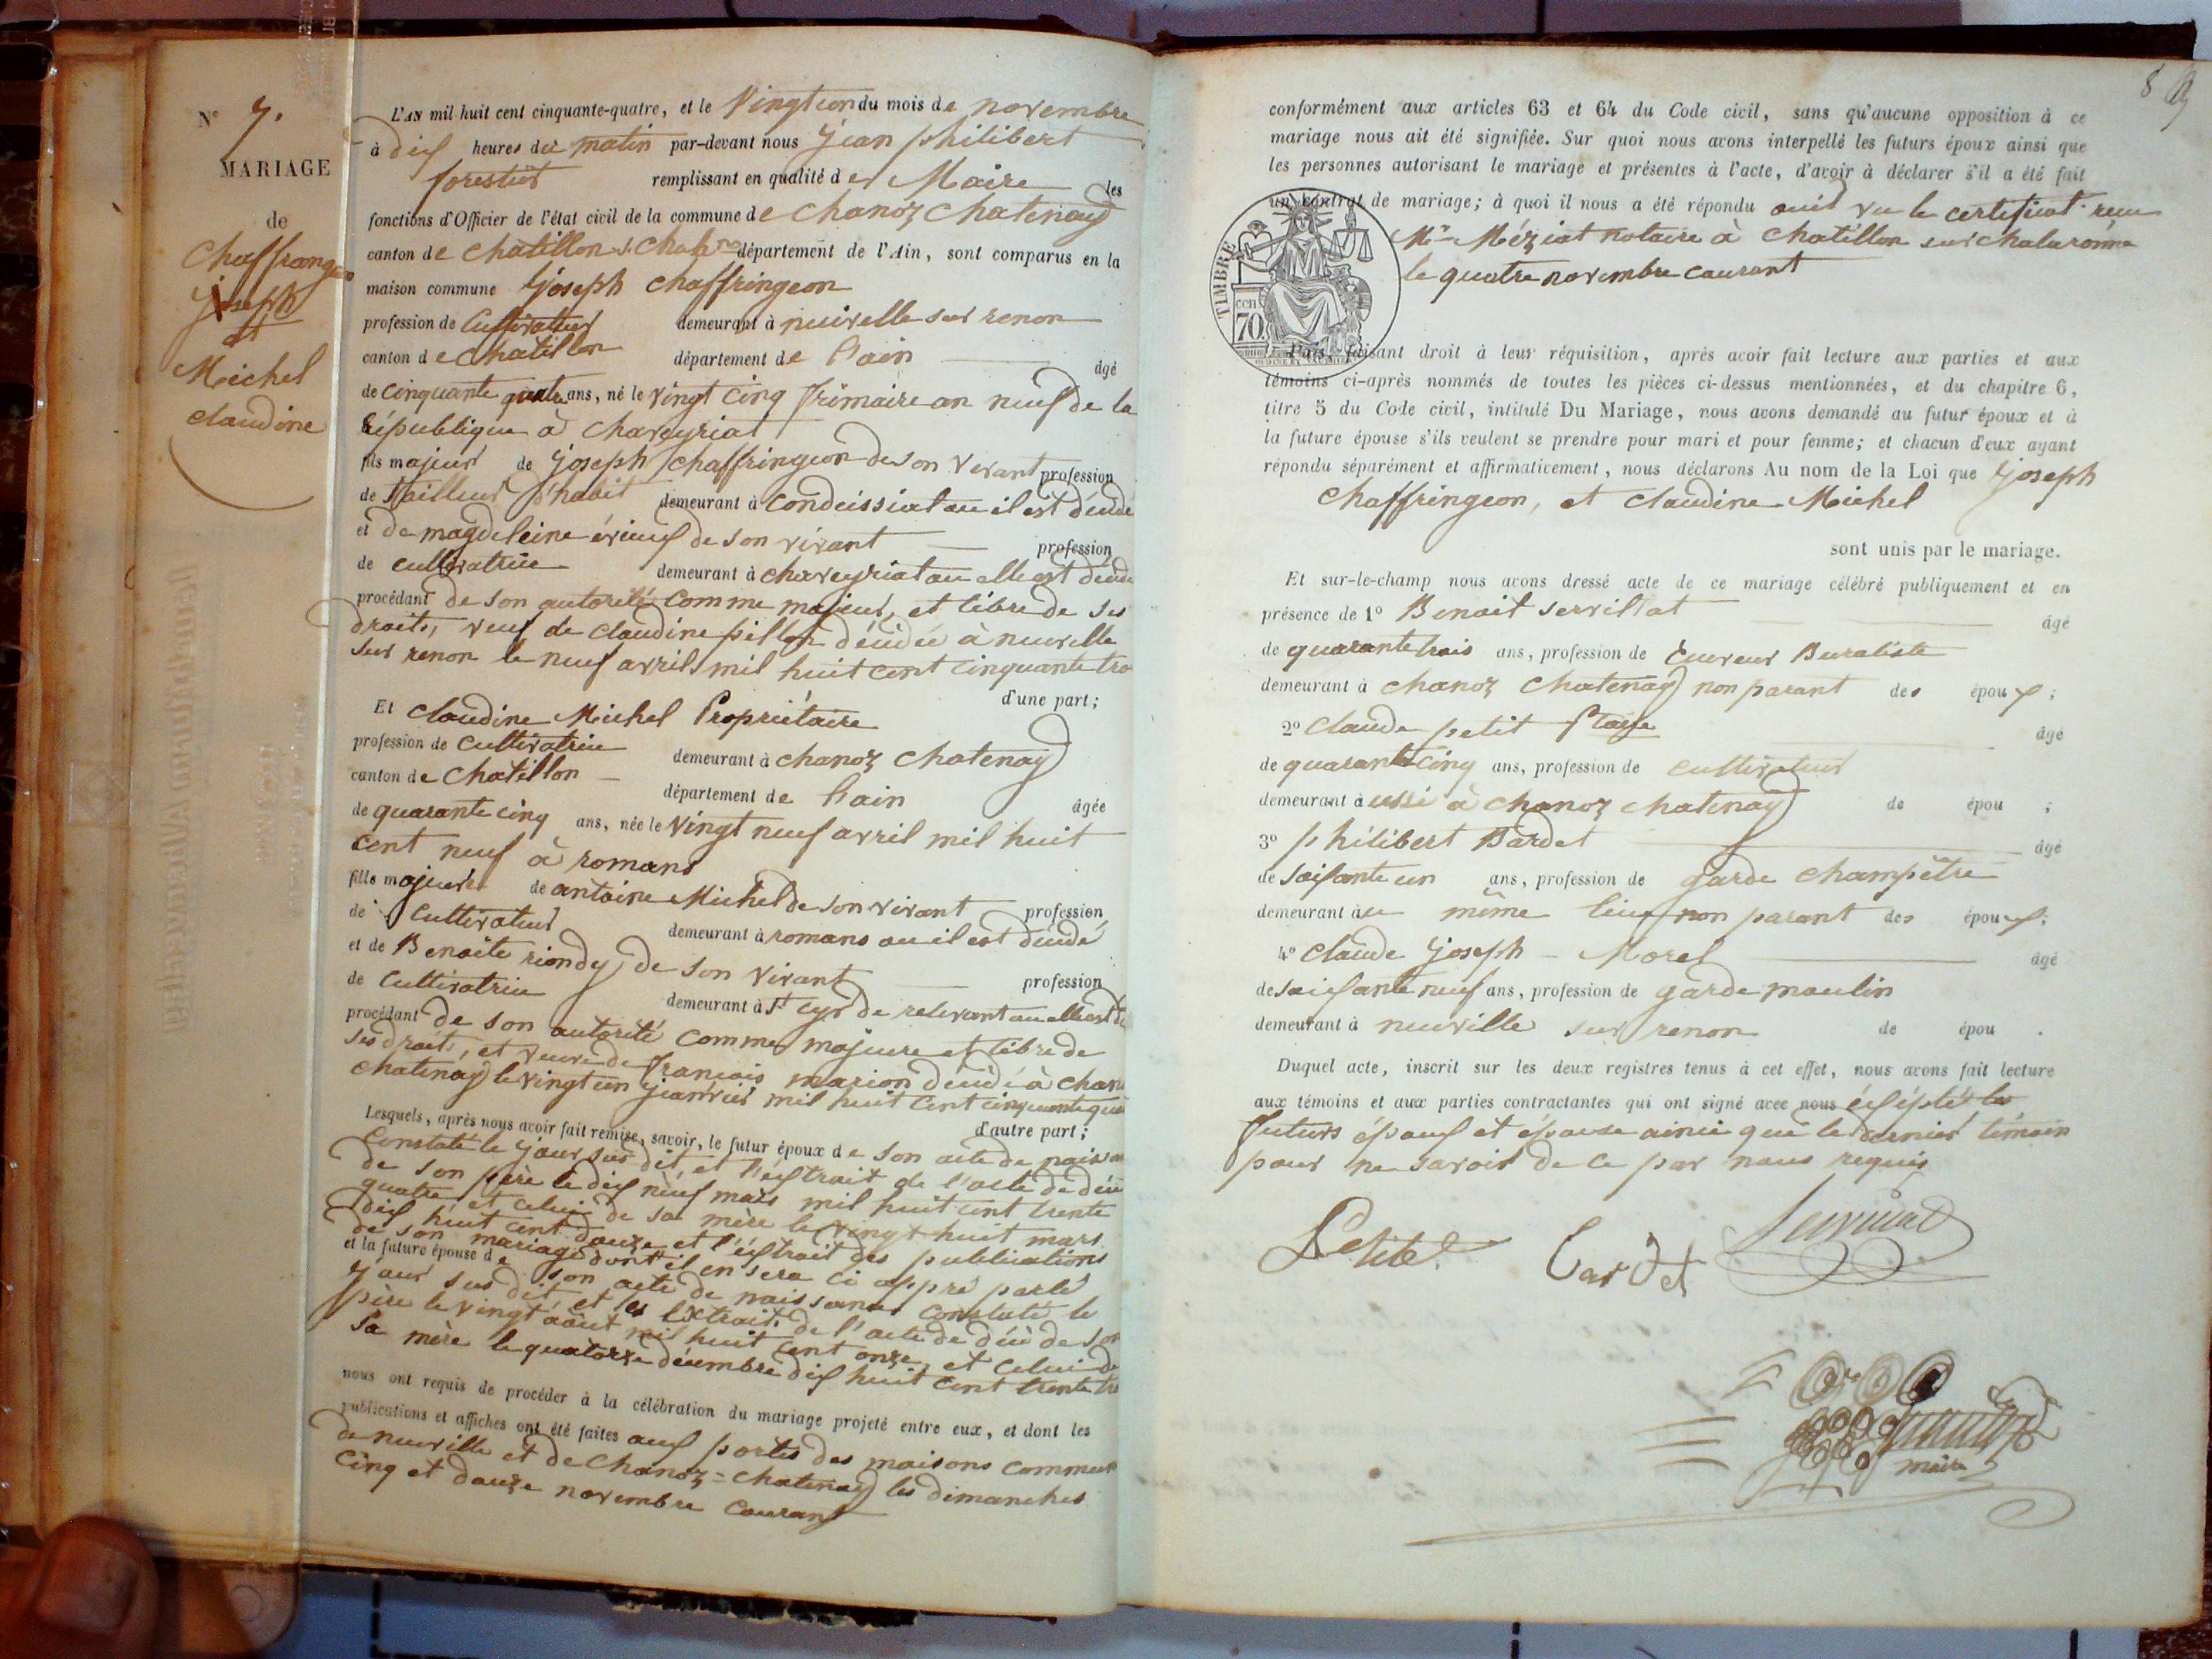 N° 7.
MARIAGE
de
Chaffrangeon
joseph
et
Michel
claudine
L'AN mil huit cent cinquante-quatre, et le Vingt un du mois de novembre
à dix heures du matin par-devant nous jean philibert
forestier remplissant en qualité de Maire les
fonctions d'Officier de l'état civil de la commune de chanoz chatenay
canton de chatillon s. Chal.ne département de l'Ain, sont comparus en la
maison commune joseph chaffringeon
profession de Cultivateur demeurant à neuvelle sur renon
canton de chatillon département de l'ain âgé
de cinquante quatre ans, né le vingt cinq frimaire an neuf de la
République à chaveyriat
fils majeur de joseph chaffringeon de son vivant profession
de Tailleur d'habit demeurant à condeissiat ou il est décédé
et de magdeleine évieux de son vivant profession
de cultivatrice demeurant à chaveyriat ou elle est décédé
procédant de son autorité comme majeur, et libre de ses
droits, veuf de claudine pillon décédée à neuvelle
sur renon le neuf avril mil huit cent cinquante tro
d'une part;
Et claudine Michel Propriétaire
profession de cultivatrice demeurant à chanoz chatenay
canton de chatillon département de l'ain âgée
de quarante cinq ans, née le vingt neuf avril mil huit
cent neuf à romans
fille majeure de antoine Michel de son vivant profession
de cultivateur demeurant à romans ou il est décédé
et de Benoite riondy, de son vivant profession
de cultivatrice demeurant à St cyr de relevant ou elle est dé
procédant de son autorité comme majeure et libre de
ses droits, et veuve de françois marion décédé à chan
chatenay le vingt un janvier mil huit cent cinquante qua
d'autre part;
Lesquels, après nous avoir fait remise, savoir, le futur époux de son acte de naissa
constaté le jour sus dit, et l'extrait de l'acte de décé
de son père le dix neuf mars mil huit cent trente
quatre, et celui de sa mère le vingt huit mars
dix huit cent douze et l'extrait des publications
de son mariage dont il en sera ci appré parlé
et la future épouse de son acte de naissance constaté le
jour sus dit et les extraits de l'acte de décé de son
père le vingt août mil huit cent onze, et celui de
sa mère le quatorze décembre dix huit cent trente tro
nous ont requis de procéder à la célébration du mariage projeté entre eux, et dont les
publications et affiches ont été faites aux portes des maisons commun
de neuville et de Chanoz=chatenay les dimanches
cinq et douze novembre courant
8
conformément aux articles 63 et 64 du Code civil, sans qu'aucune opposition à ce
mariage nous ait été signifiée. Sur quoi nous avons interpellé les futurs époux ainsi que
les personnes autorisant le mariage et présentes à l'acte, d'avoir à déclarer s'il a été fait
un contrat de mariage; à quoi il nous a été répondu oui vu le certificat reçu
Mr Méziat notaire à chatillon sur chalaronne
le quatre novembre courant
TIMBRE
70
Puis, faisant droit à leur réquisition, après avoir fait lecture aux parties et aux
témoins ci-après nommés de toutes les pièces ci-dessus mentionnées, et du chapitre 6,
titre 5 du Code civil, intitulé Du Mariage, nous avons demandé au futur époux et à
la future épouse s'ils veulent se prendre pour mari et pour femme; et chacun d'eux ayant
répondu séparément et affirmativement, nous déclarons Au nom de la Loi que joseph
chaffringeon, et claudine Michel
sont unis par le mariage.
Et sur-le-champ nous avons dressé acte de ce mariage célébré publiquement et en
présence de 1° Benoit servillat âgé
de quarante trois ans, profession de Buraliste
demeurant à chanoz chatenay non parant des époux;
2° claude petit âgé
de quarante cinq ans, profession de cultivateur
demeurant aussi à chanoz chatenay de épou ;
3° philibert Bardet âgé
de soixante un ans, profession de garde champêtre
demeurant au même lieu non parant des époux;
4° claude joseph Morel âgé
de soixante neuf ans, profession de garde moulin
demeurant à neuville sur renon de épou .
Duquel acte, inscrit sur les deux registres tenus à cet effet, nous avons fait lecture
aux témoins et aux parties contractantes qui ont signé avec nous éxépté les
futurs époux et épouse ainci que le dernier témoin
pour ne savoir de ce par nous requis
Petit
Bardet
Servillat
maire